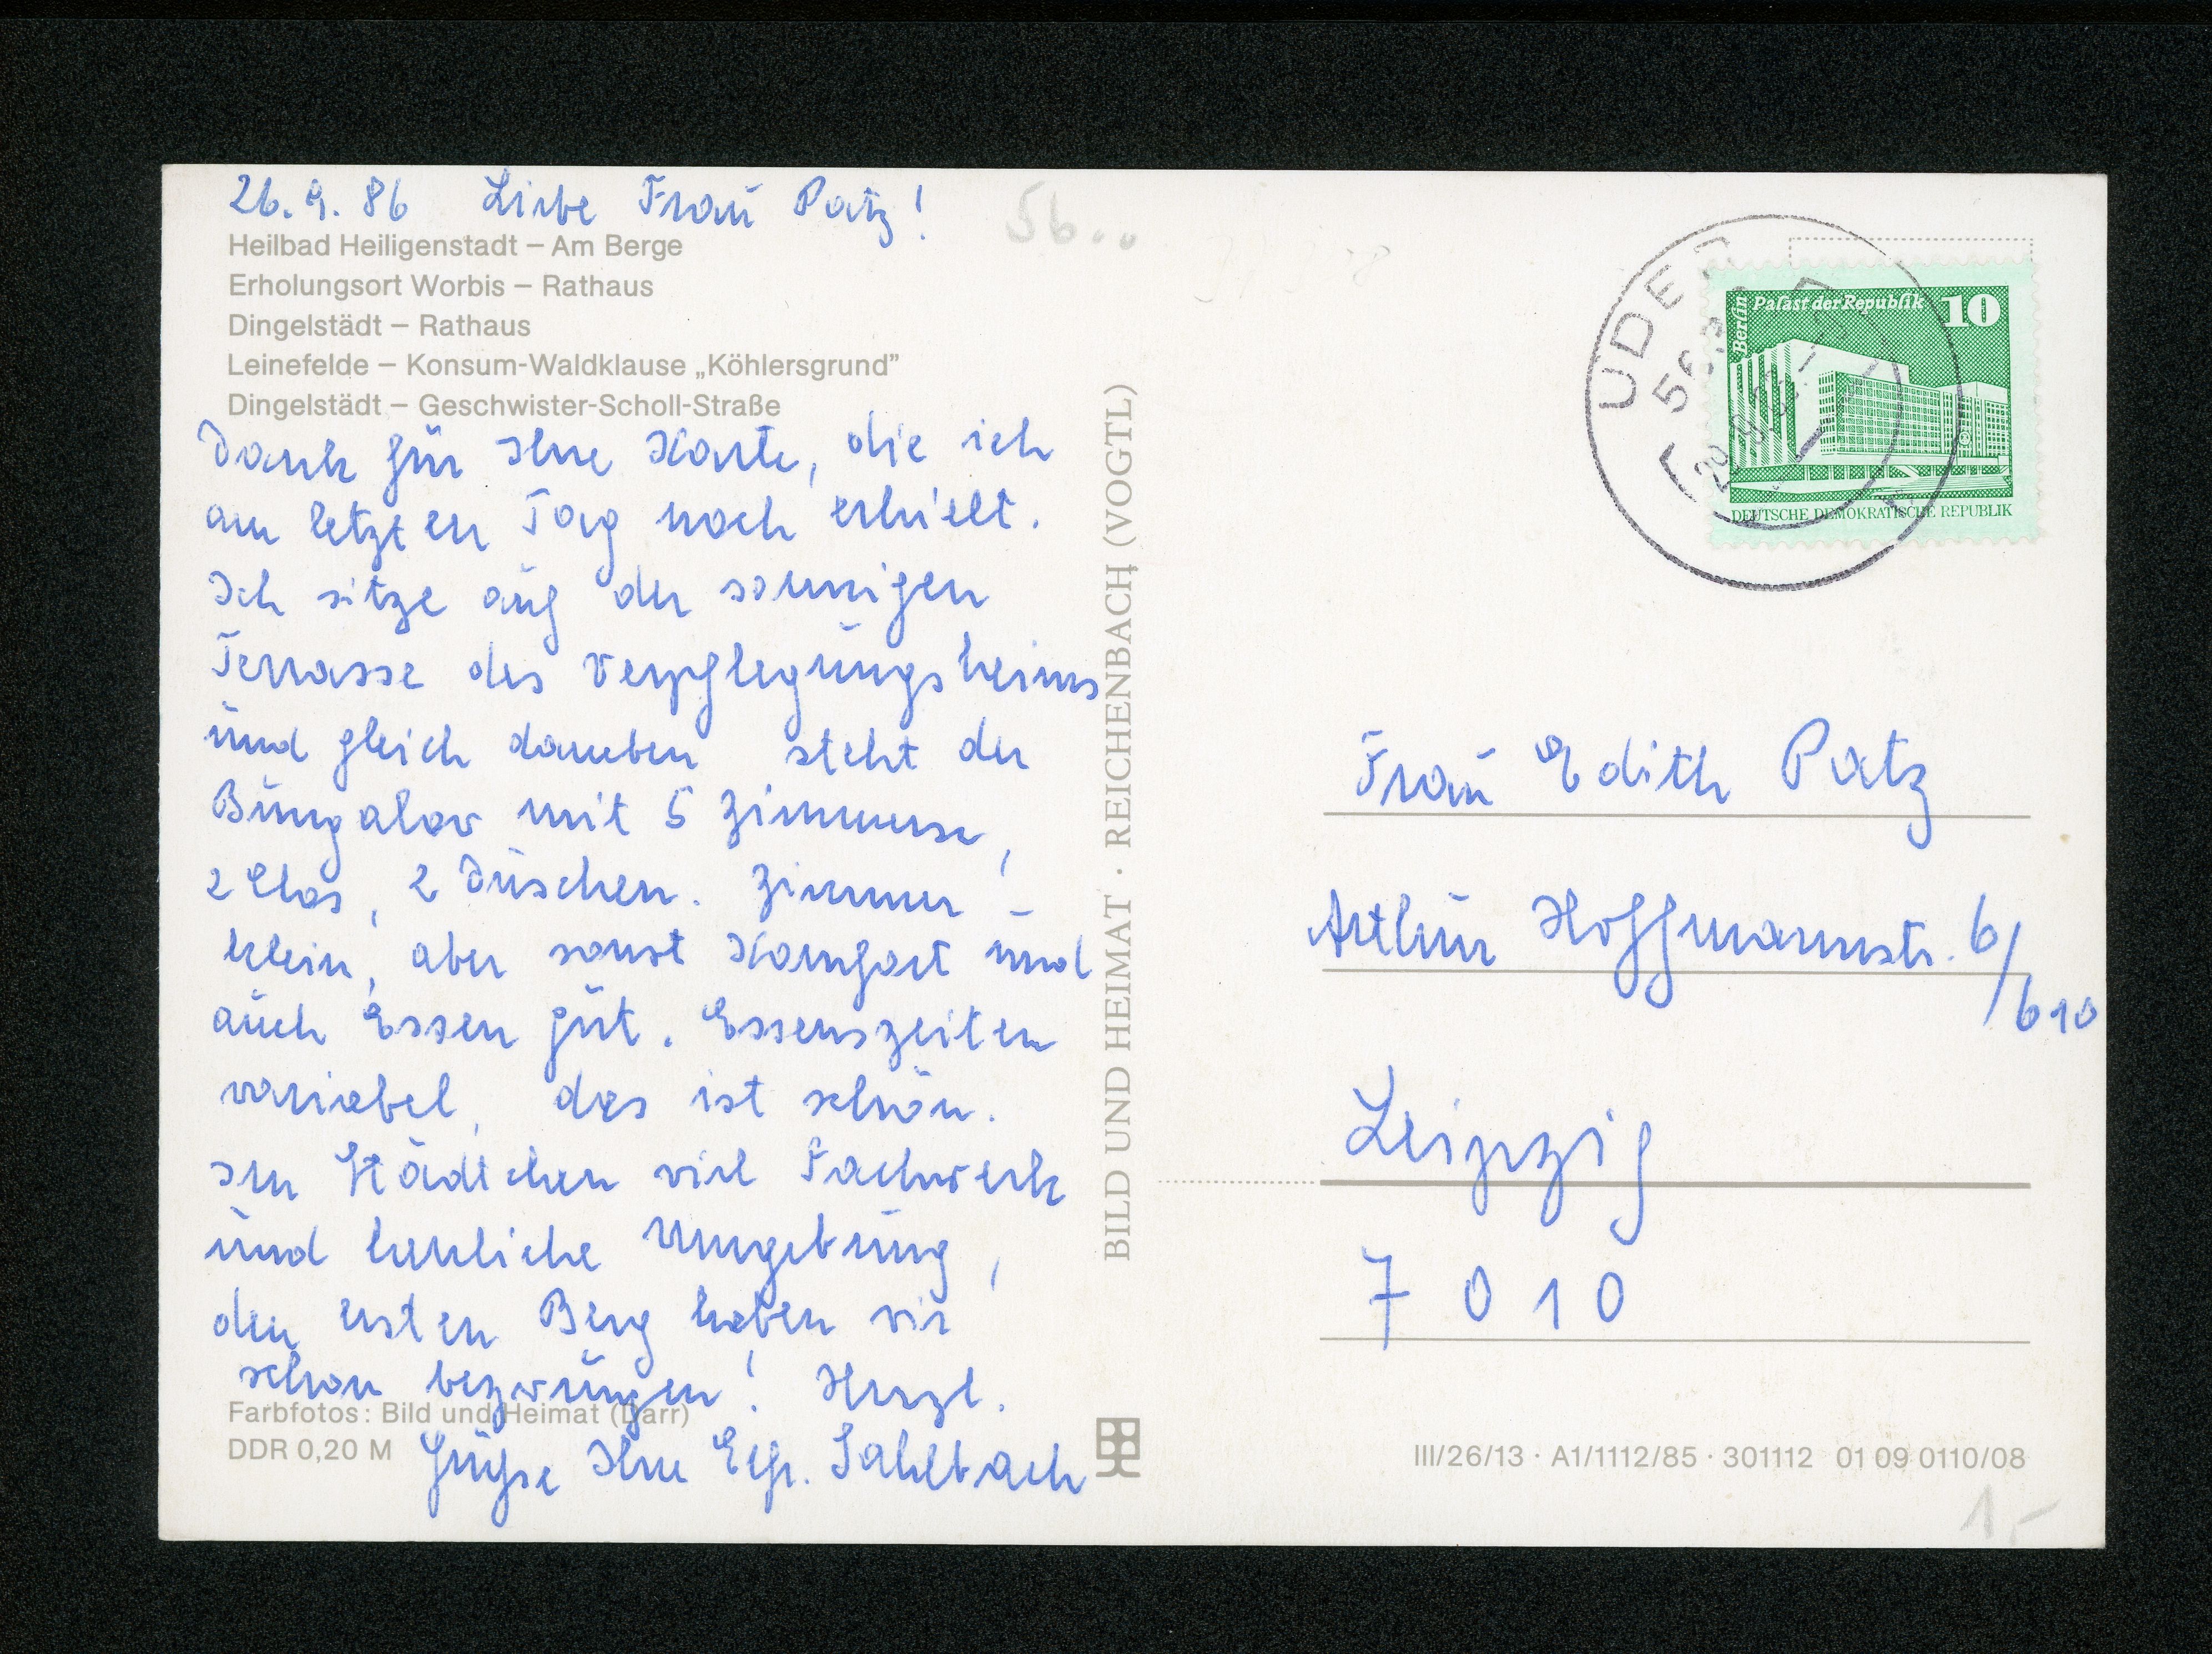 26.9.86 Liebe Frau Patz!
56..
Heilbad Heiligenstadt – Am Berge
Erholungsort Worbis – Rathaus
Dingelstädt – Rathaus
Leinefelde – Konsum-Waldklause „Köhlersgrund”
Dingelstädt – Geschwister-Scholl-Straße
Dank für Ihre Karte, die ich
am letzten Tag noch erhielt.
Ich sitze auf der sonnigen
Terrasse des Verpflegungsheims
und gleich daneben steht der
Bungalow mit 5 Zimmern,
2 Clos, 2 Duschen. Zimmer –
klein, aber sonst Komfort und
auch Essen gut. Essenszeiten
variabel, das ist schön.
Im Städtchen viel Fachwerk
und herrliche Umgebung,
den ersten Berg haben wir
schon bezwungen! Herzl.
Grüße Ihre Elfr. Sahlbach
Farbfotos: Bild und Heimat (Darr)
DDR 0,20 M
BILD UND HEIMAT · REICHENBACH (VOGTL)
UDER
Berlin
Palast der Republik
10
DEUTSCHE DEMOKRATISCHE REPUBLIK
Frau Edith Patz
Arthur Hoffmannstr. 6/
/610
Leipzig
7010
III/26/13 · A1/1112/85 · 301112 01 09 0110/08
1,-